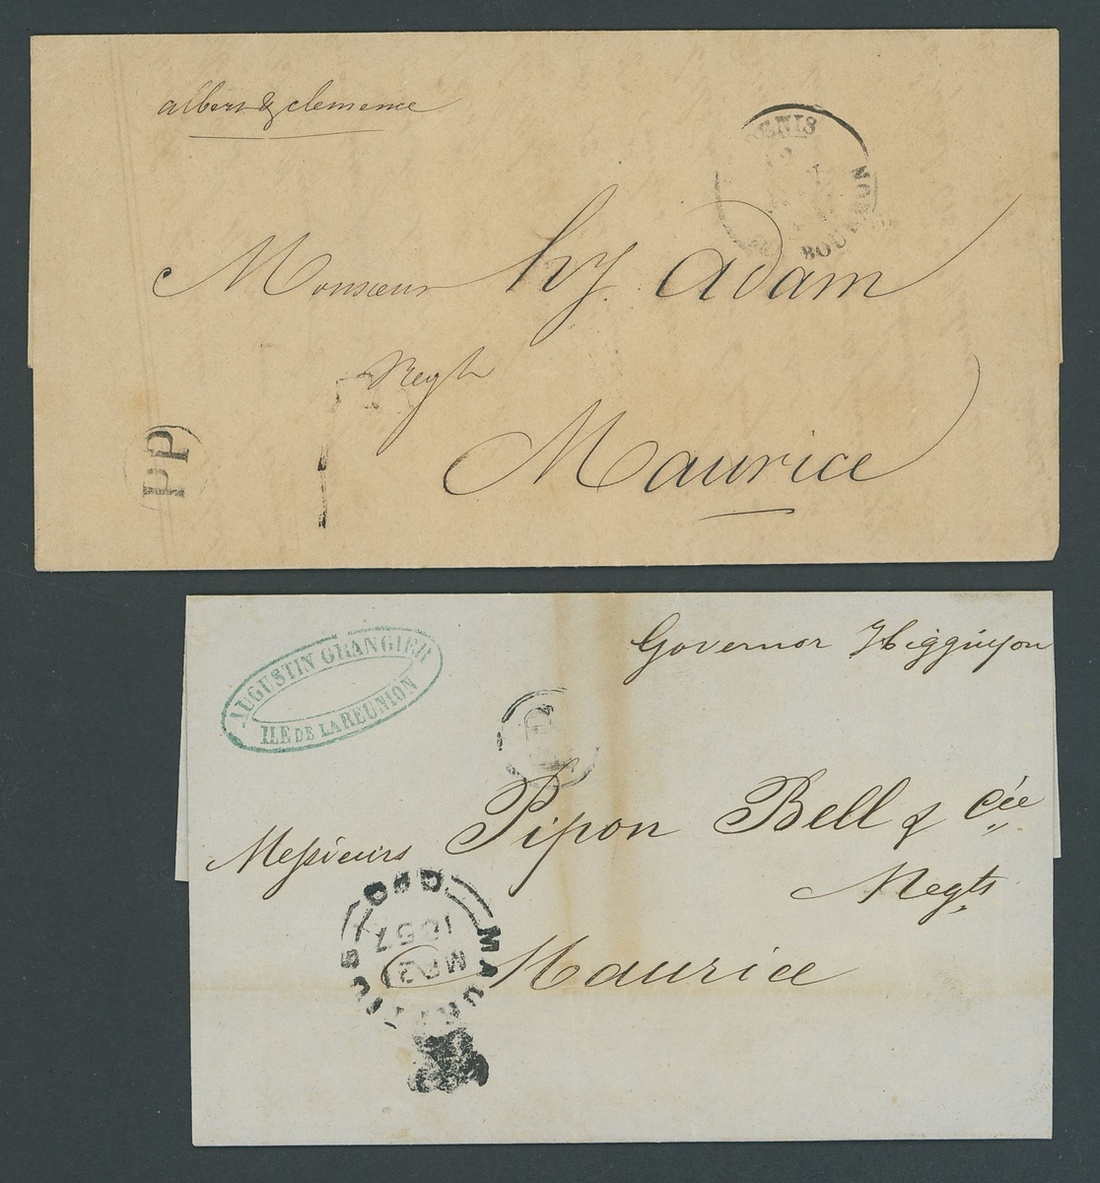 albert & clemence
DENIS
BOURBON
Monsieur hy Adam
Negt
Maurice
PP
1
AUGUSTIN GRANGIER
ILE DE LA REUNION
Governor Higginson
Messieurs Pipon Bell & Cie
Negts
Maurice
MAURITIUS
GPO
MR 2
1857